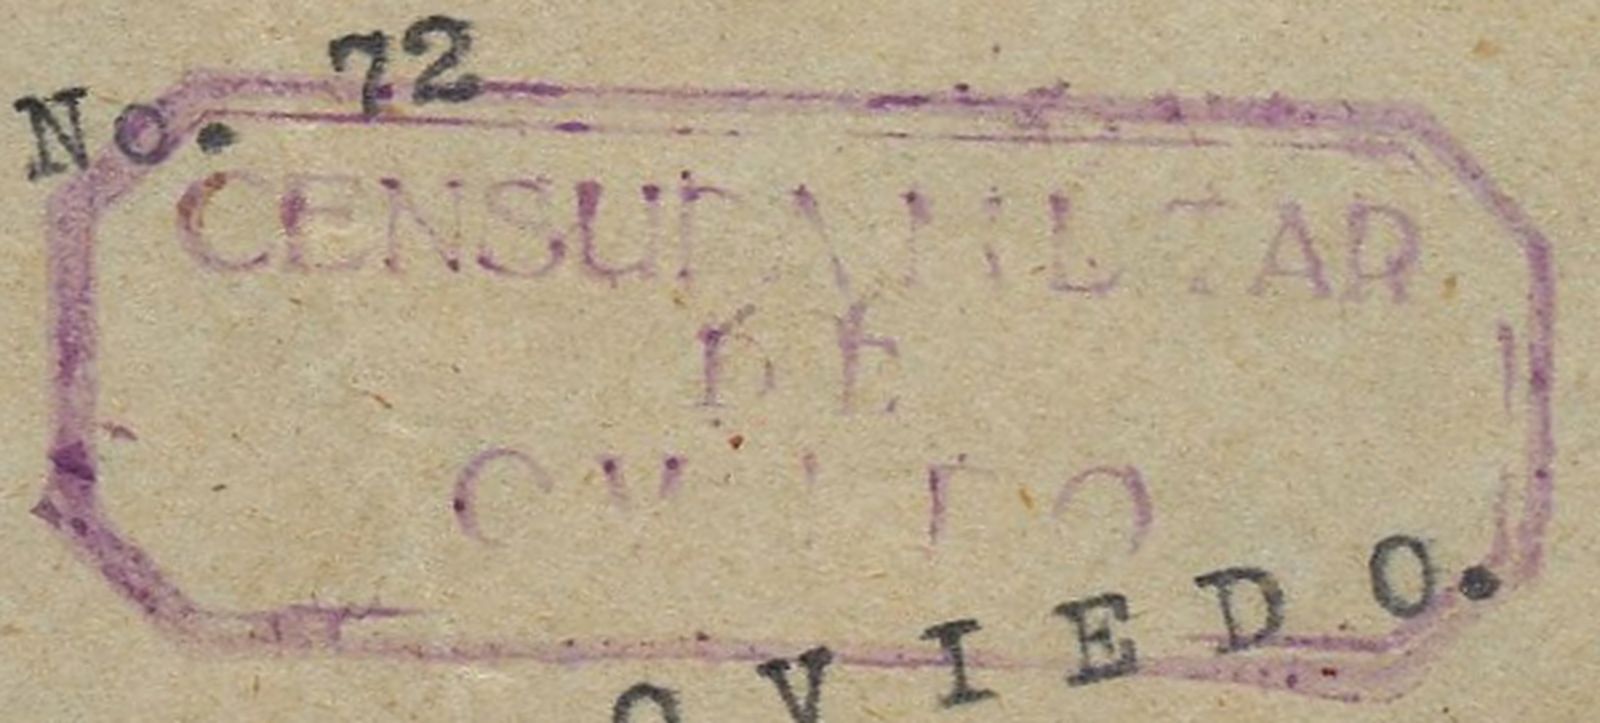 No. 72
CENSURA MILITAR
DE
OVIEDO
OVIEDO.